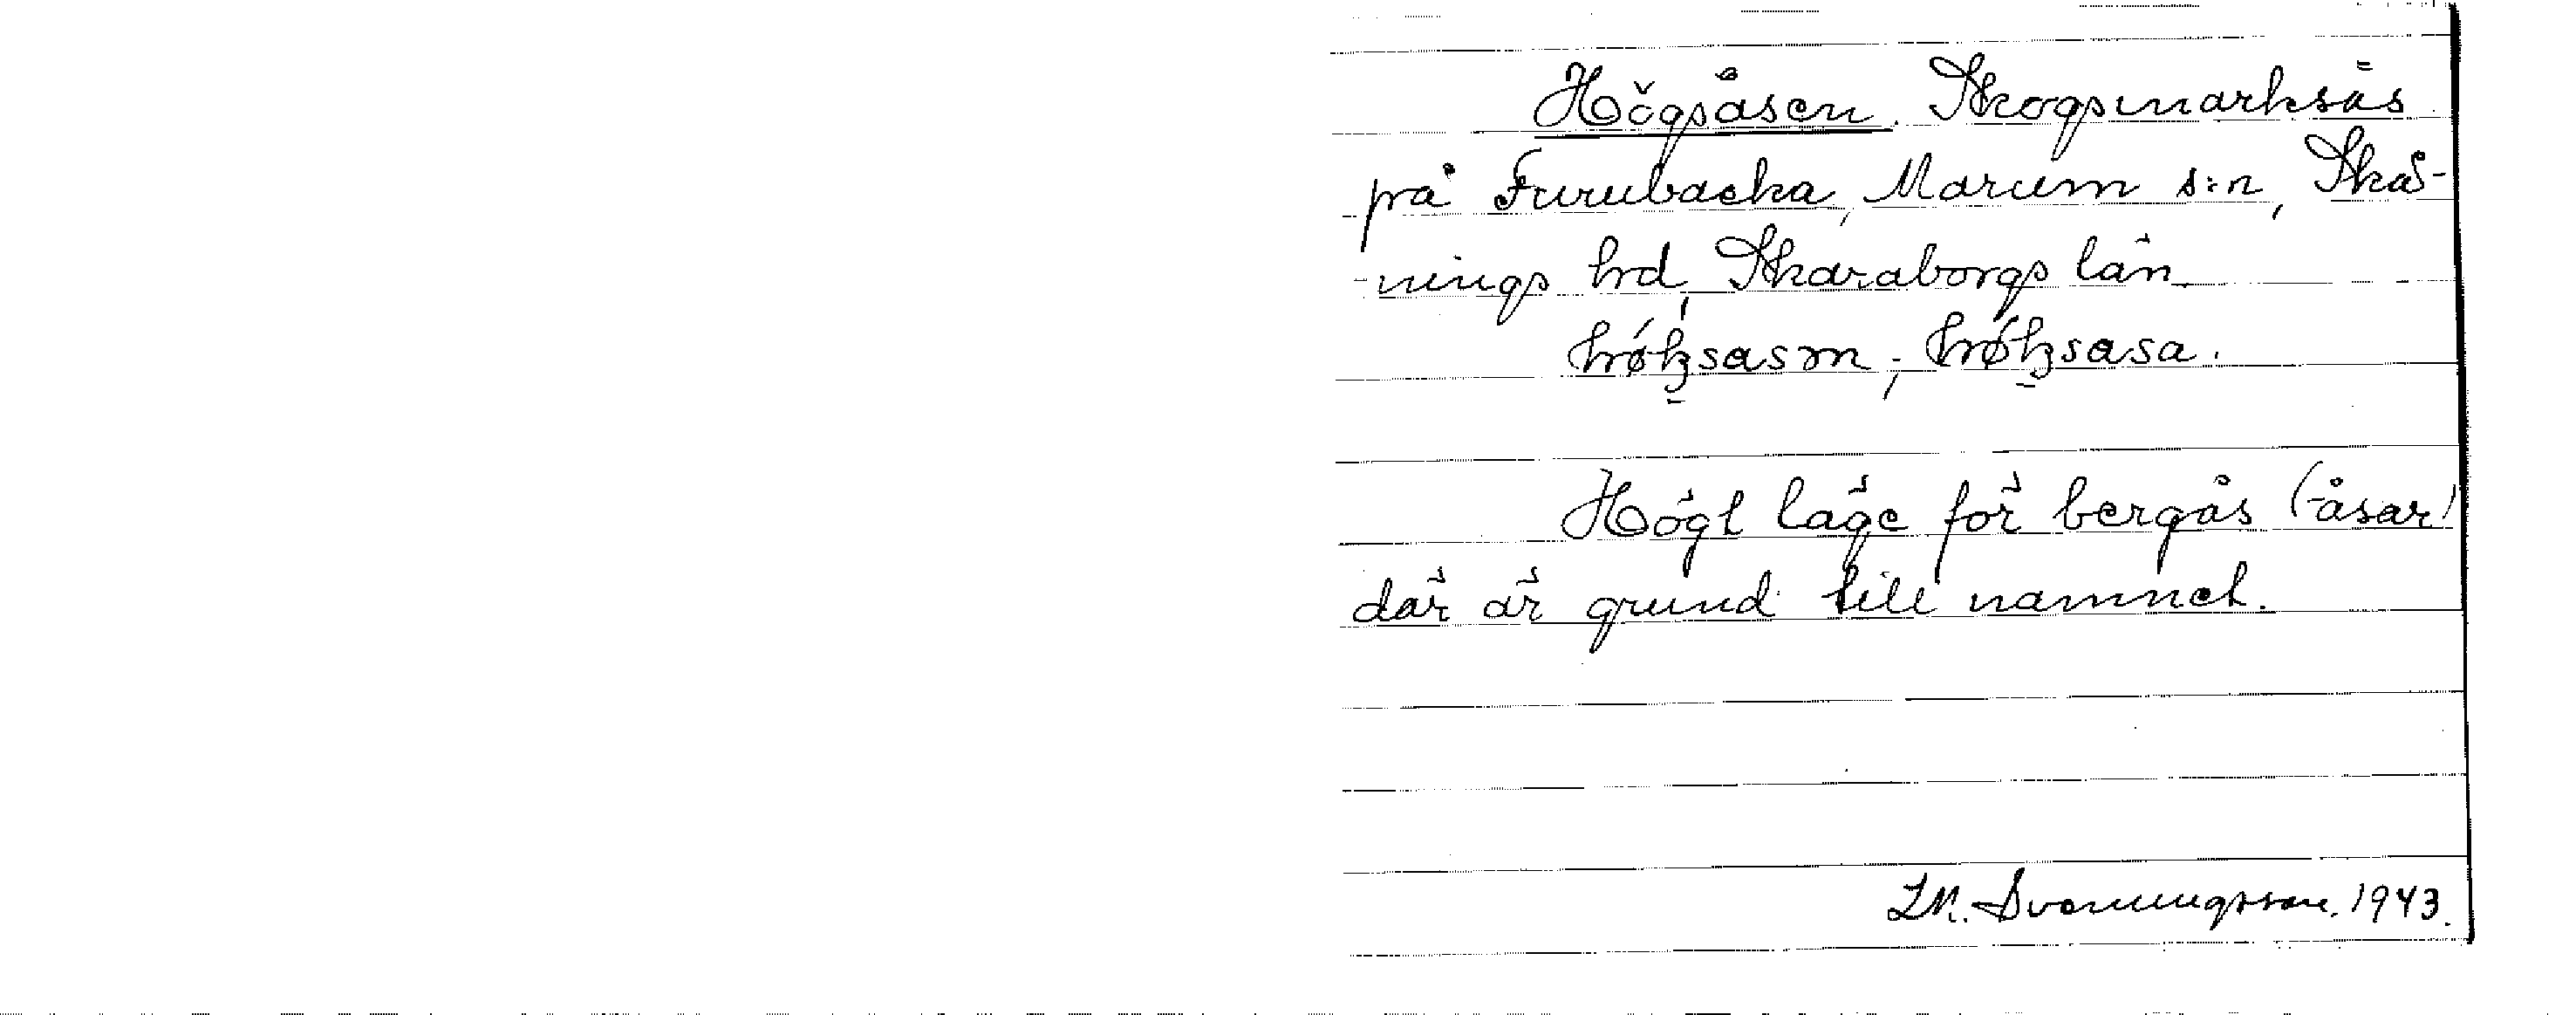 Högsåsen. Skogsmarksås
på Furubacka, Marum s:n, Skå-
-nings hrd, Skaraborgs län.
Högt läge för bergås (-åsar)
där är grund till namnet.
L.M. Svenungsson. 1943.